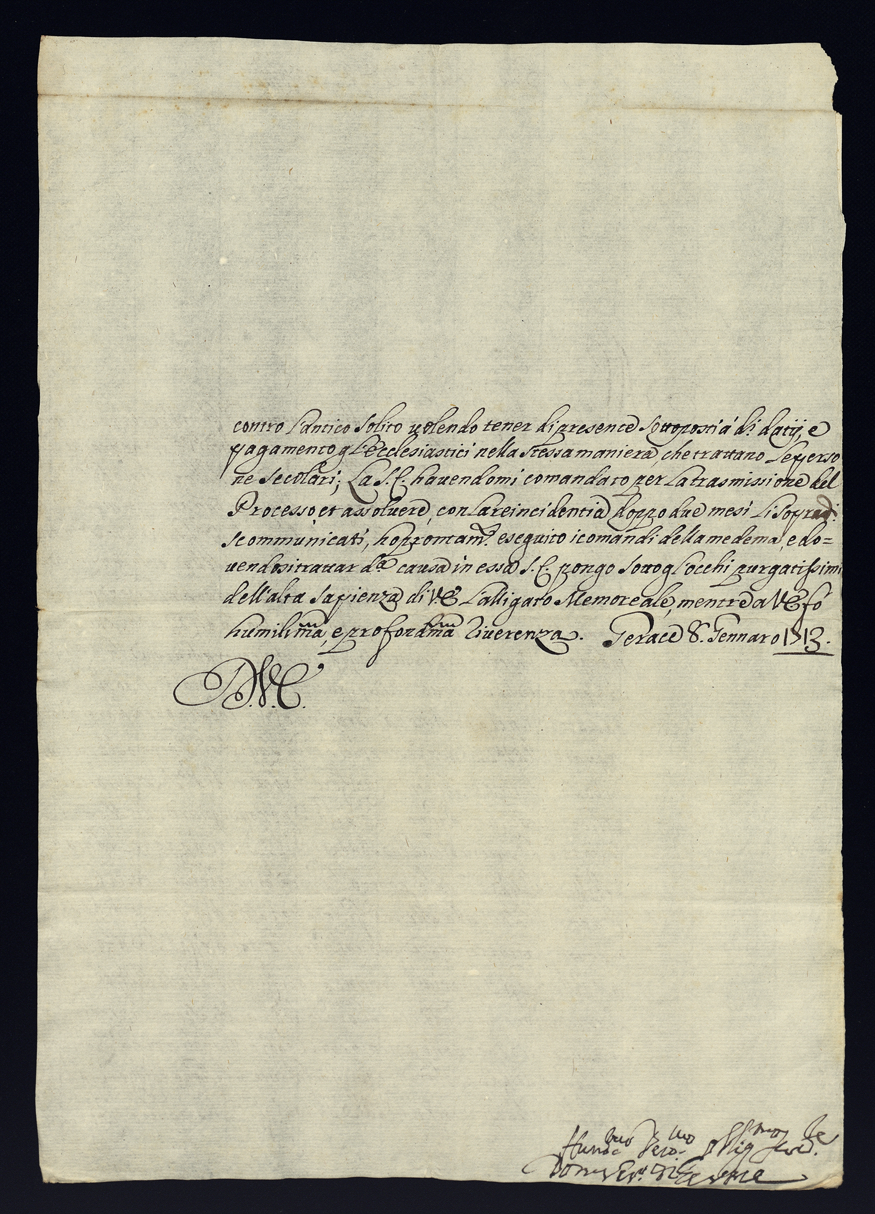 contro l'antico solito volendo tener di presence sottoposti a' di. datij, e
pagamento gl'Ecclesiastici nella stessa maniera, che trattano le perso
ne secolari; La S. C. havendomi comandato per la trasmissione del
Processo et assolvere, con la reincidentia doppo due mesi li sopradi.
scommunicati, ho prontamte. eseguito i comandi della medema, e do=
vendosi travar da. causa in essa S. C. pongo sotto gl'occhi purgatissimi
dell'alta sapienza di V.E. l'alligato Memoreale, mentre a V.E. fo
humilima, e profondma riverenza. Gerace 8. Gennaro 1713.
D.V.E.
Humo Devo. Obligmo Serre.
Vescovo di Gerace